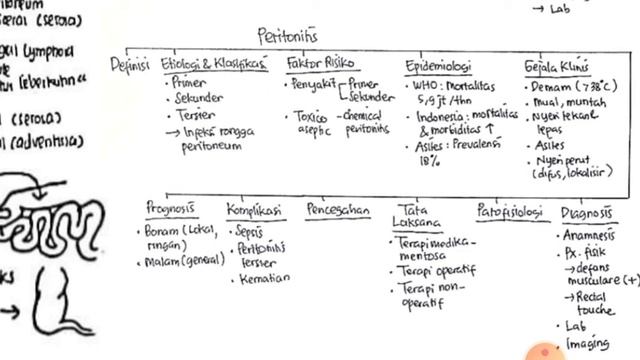 → Lab
serai (serosa)
lymphoid
(serosa)
(adventitia)
Peritonitis
Definisi
Etiologi & Klasifikasi
• Primer
• Sekunder
• Tersier
→ Infeksi rongga
peritoneum
Faktor Risiko
• Penyakit Primer
Sekunder
• Toxico - chemical
aseptic peritonitis
Epidemiologi
• WHO: Mortalitas
5,9 jt/thn
• Indonesia: mortalitas
& morbiditas ↑
• Asites: Prevalensi
18%
Gejala Klinis
• Demam (>38°C)
• Mual, muntah
• Nyeri tekan &
lepas
• Asites
• Nyeri perut
(difus, lokalisir)
Prognosis
• Bonam (Lokal,
ringan)
• Malam (general)
Komplikasi
• Sepsis
• Peritonitis
tersier
• Kematian
Pencegahan
Tata
Laksana
• Terapi medika-
mentosa
• Terapi operatif
• Terapi non-
operatif
Patofisiologi
Diagnosis
• Anamnesis
• Px. fisik
→ defans
musculare (+)
→ Rectal
touche
• Lab
• Imaging